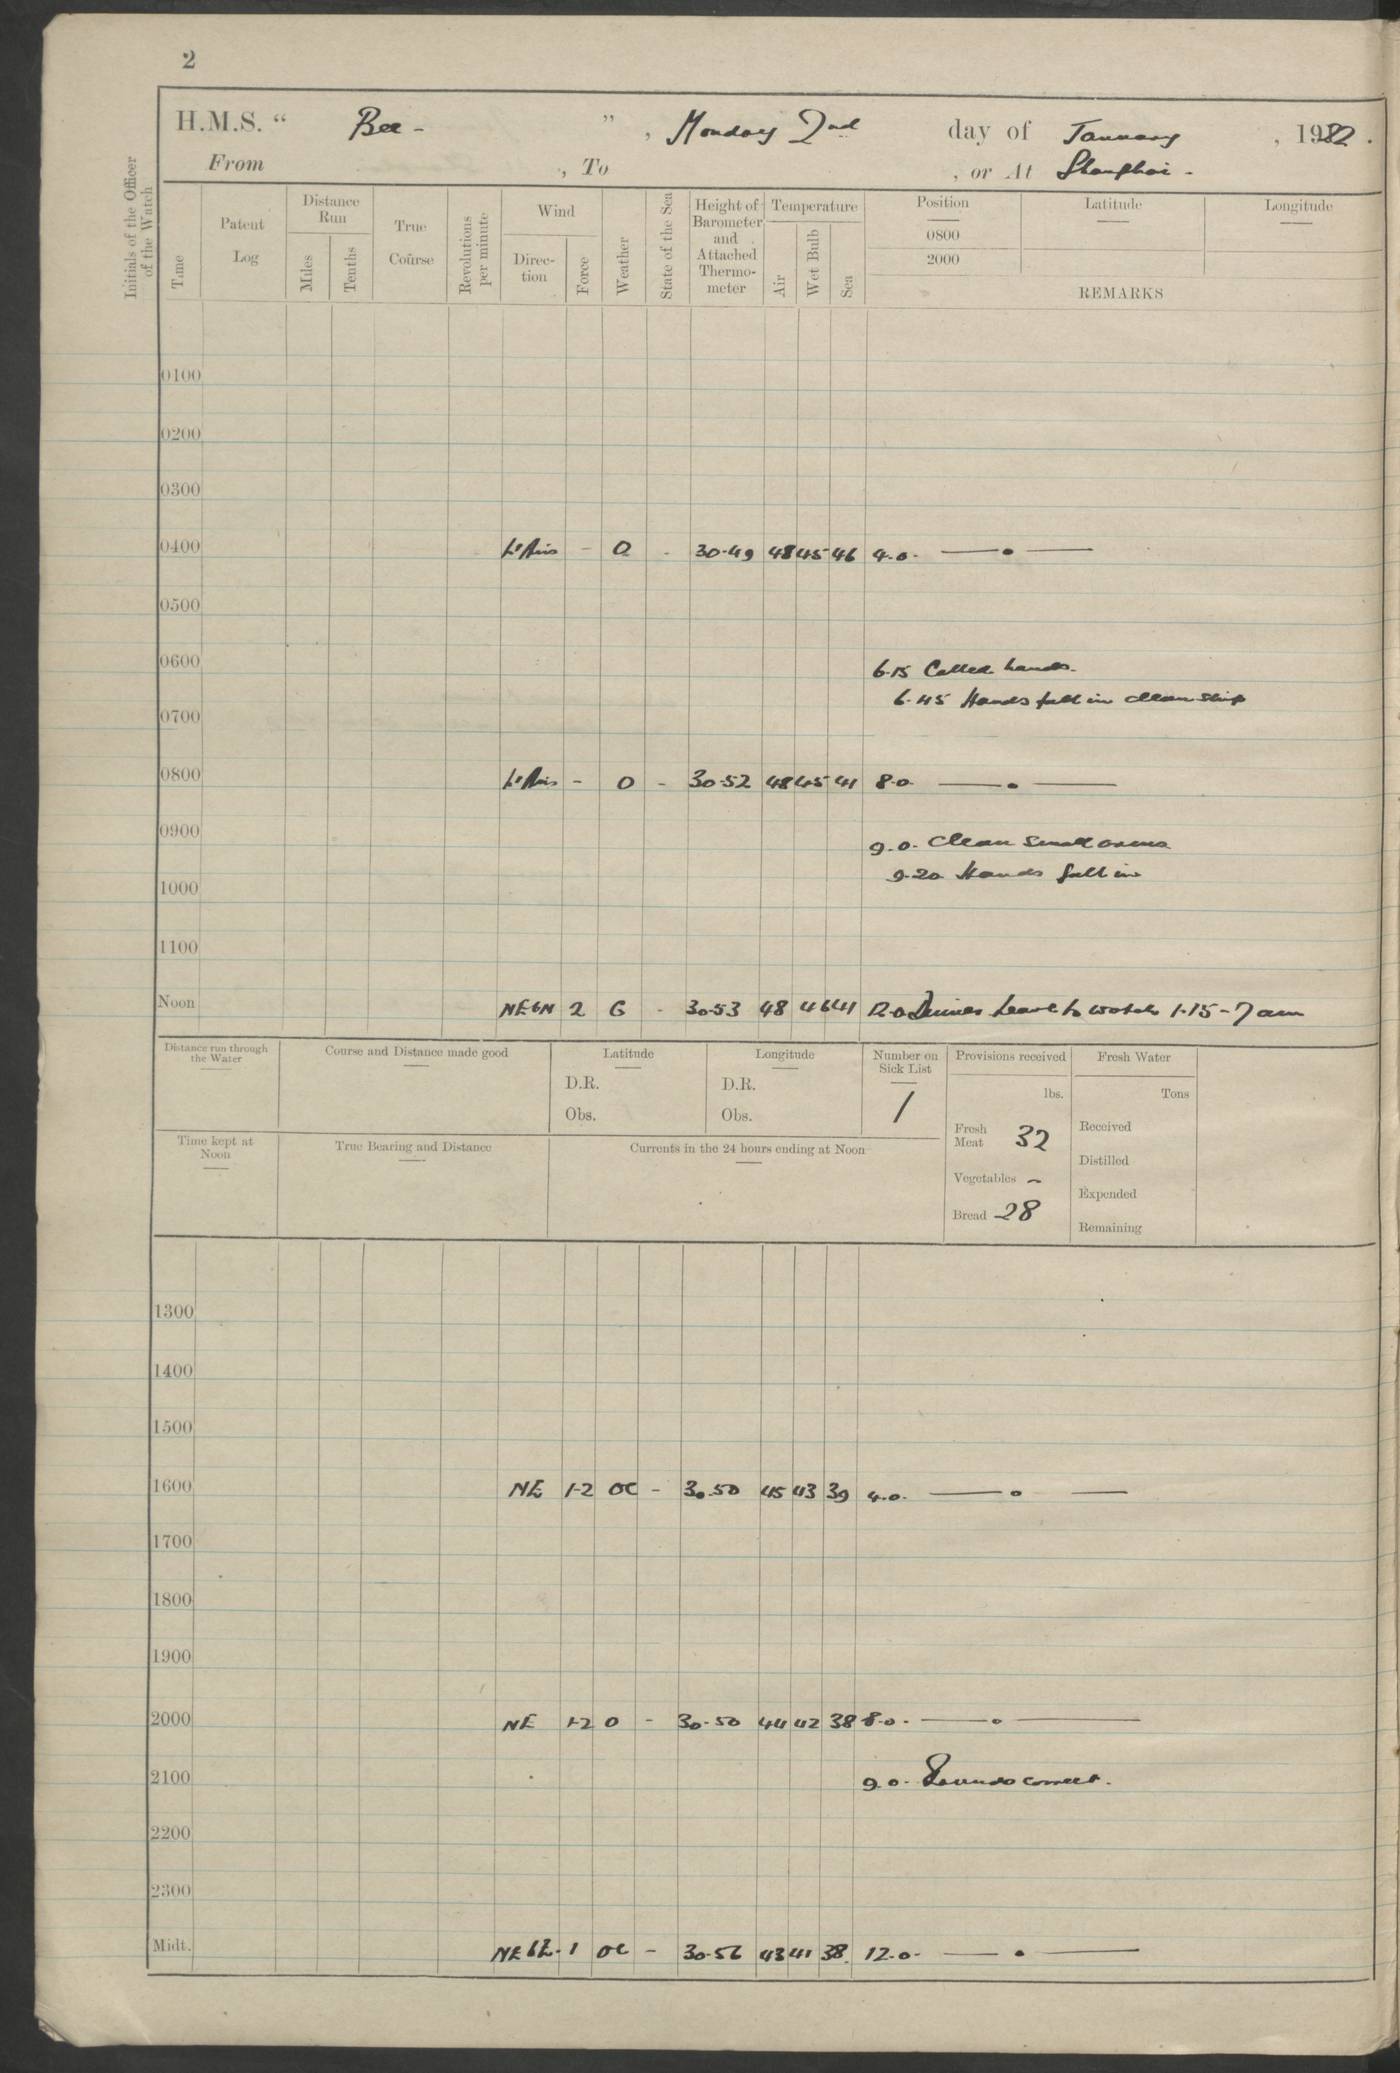 2
H.M.S. “ Bee - ” , Monday 2nd day of January , 1922 .
From , To , or At Shanghai -
Initials of the Officer of the Watch
Time
Patent Log
Distance Run
Miles
Tenths
True Course
Revolutions per minute
Wind
Direction
Force
Weather
State of the Sea
Height of Barometer and Attached Thermometer
Temperature
Air
Wet Bulb
Sea
Position
0800
2000
Latitude
Longitude
REMARKS
0100
0200
0300
0400 Lt Airs - O - 30.49 48 45 46 4.0. — • —
0500
0600 6.15 Called hands.
6.45 Hands fall in clean ship
0700
0800 Lt Airs - O - 30.52 48 45 41 8.0 — • —
0900 9.0. Clean small arms
9.20 Hands fall in
1000
1100
Noon NEbN 2 G - 30.53 48 46 41 12.0 Leave to watch 1.15 - 7 am
Distance run through the Water
Course and Distance made good
Latitude
D.R.
Obs.
Longitude
D.R.
Obs.
Number on Sick List
1
Provisions received
lbs.
Fresh Meat 32
Vegetables -
Bread 28
Fresh Water
Tons
Received
Distilled
Expended
Remaining
Time kept at Noon
True Bearing and Distance
Currents in the 24 hours ending at Noon
1300
1400
1500
1600 NE 1-2 OC - 30.50 45 43 39 4.0. — • —
1700
1800
1900
2000 NE 1-2 O - 30.50 44 42 38 8.0. — • —
2100 9.0. Rounds correct.
2200
2300
Midt. NEbE. 1 OC - 30.56 43 41 38. 12.0. — • —